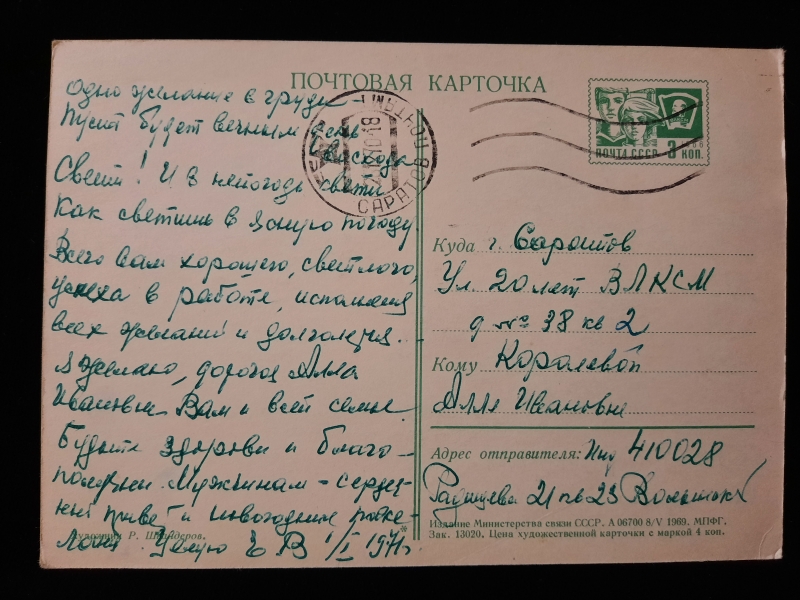 ПОЧТОВАЯ КАРТОЧКА
Одно желание в груди –
Пусть будет вечным день
восхода
Свети! И в непогодь свети
Как светишь в ясную погоду.
Всего Вам хорошего, светлого,
успеха в работе, исполнения
всех желаний и долголетия.
я желаю, дорогая Алла
Ивановна Вам и всей семье.
Будьте здоровы и благо-
получны. Мужчинам – сердеч-
ный привет и новогодние поже-
лания. Целую Е В 1/I 1971г
Художник Р.
САРАТОВ
ПОЧТА СССР
3 коп.
1966
Куда г. Саратов
Ул. 20 лет ВЛКСМ
д № 38 кв 2
Кому Королевой
Алле Ивановне
Адрес отправителя: Инд 410028
Радищева 21 кв 23
Издание Министерства связи СССР. А 06700 8/V 1969. МПФГ.
Зак. 13020. Цена художественной карточки с маркой 4 коп.